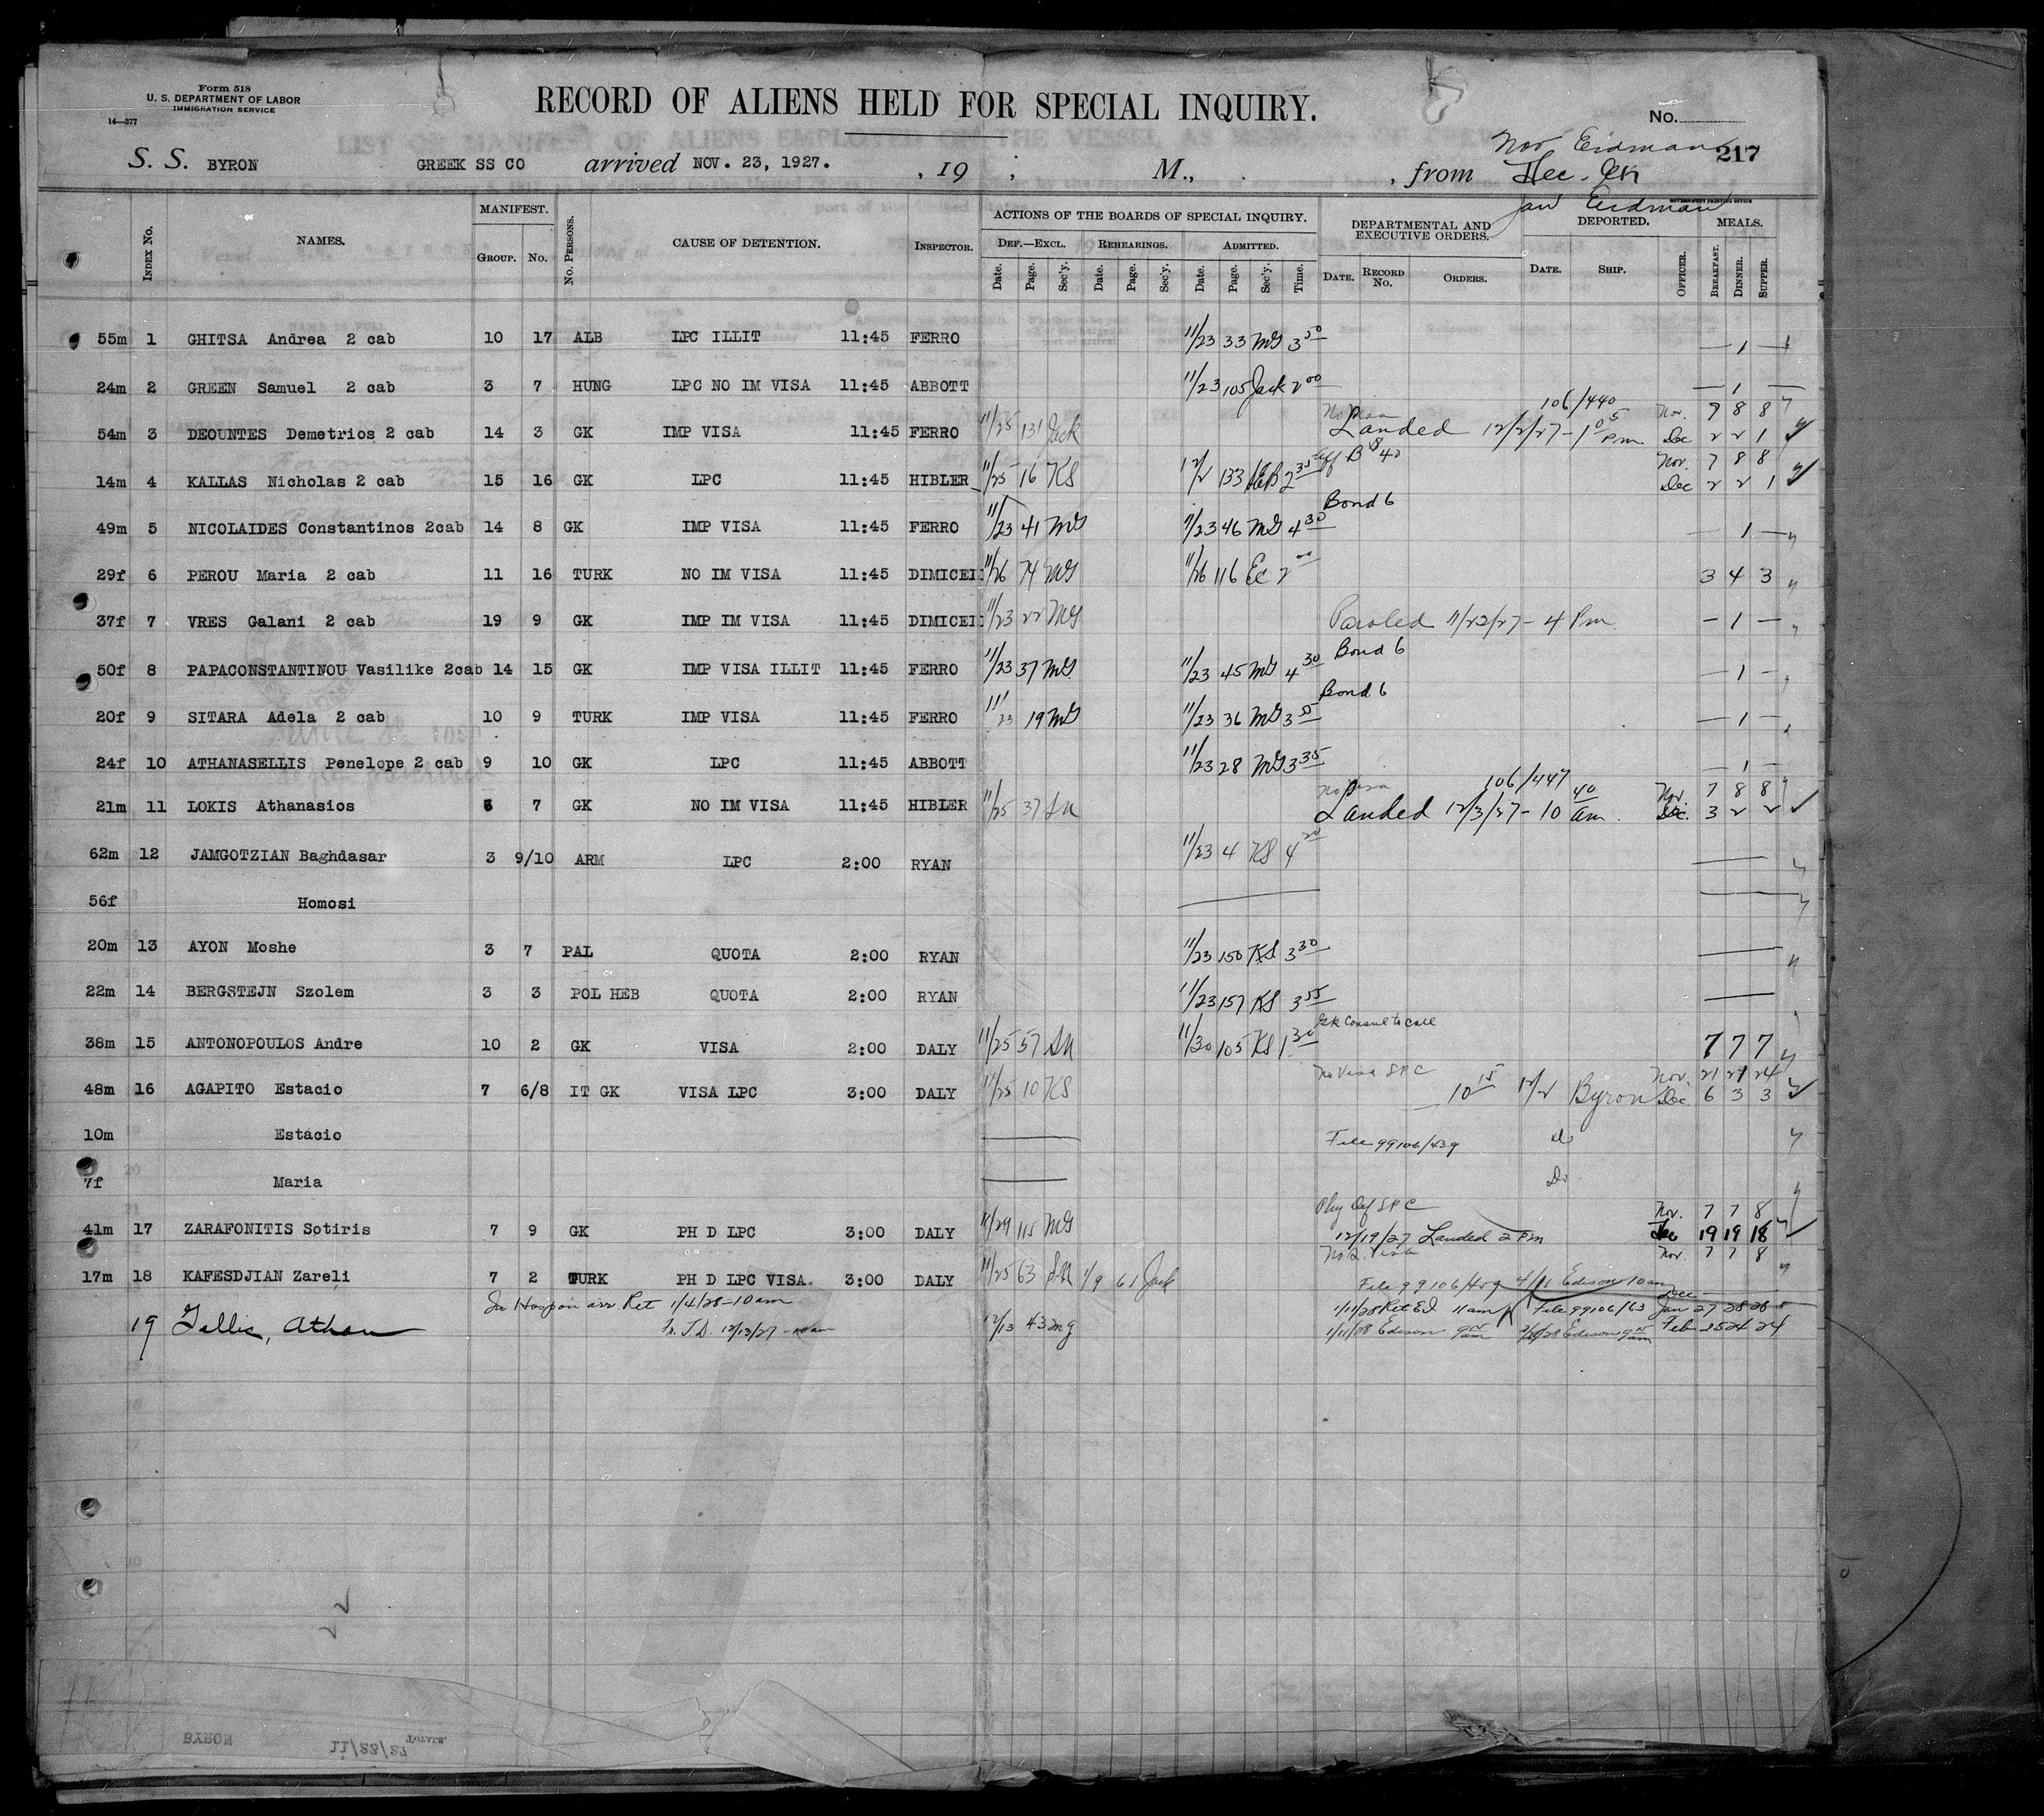 Form 518
U. S. DEPARTMENT OF LABOR
IMMIGRATION SERVICE
14—377
RECORD OF ALIENS HELD FOR SPECIAL INQUIRY.
No.
217
Nov Erdman
S. S. BYRON GREEK SS CO arrived NOV. 23, 1927. , 19 ; M., , from Dec.
Jan Erdman
GOVERNMENT PRINTING OFFICE
INDEX No. NAMES. MANIFEST. GROUP. No. No. PERSONS. CAUSE OF DETENTION. INSPECTOR. ACTIONS OF THE BOARDS OF SPECIAL INQUIRY. DEPARTMENTAL AND EXECUTIVE ORDERS. DEPORTED. MEALS.
DEF.—EXCL. REHEARINGS. ADMITTED.
Date. Page. Sec'y. Date. Page. Sec'y. Date. Page. Sec'y. Time. DATE. RECORD No. ORDERS. DATE. SHIP. OFFICER. BREAKFAST. DINNER. SUPPER.
55m 1 GHITSA Andrea 2 cab 10 17 ALB LPC ILLIT 11:45 FERRO 11/23 33 MG 3 50 — 1 —
24m 2 GREEN Samuel 2 cab 3 7 HUNG LPC NO IM VISA 11:45 ABBOTT 11/23 105 Jack 2 00 — 1 —
No Visa 106/440 Nov. 7 8 8
54m 3 DEOUNTES Demetrios 2 cab 14 3 GK IMP VISA 11:45 FERRO 11/25 131 Jack Landed 12/2/27 - 1 05 Pm Dec 2 2 1
Nov. 7 8 8
14m 4 KALLAS Nicholas 2 cab 15 16 GK LPC 11:45 HIBLER 11/25 16 KS 12/2 133 HEB 2 35 Dec 2 2 1
Bond 6
49m 5 NICOLAIDES Constantinos 2cab 14 8 GK IMP VISA 11:45 FERRO 11/23 41 MG 11/23 46 MG 4 30 — 1 —
29f 6 PEROU Maria 2 cab 11 16 TURK NO IM VISA 11:45 DIMICEI 11/26 74 MG 11/26 116 Ec 2 00 3 4 3
37f 7 VRES Galani 2 cab 19 9 GK IMP IM VISA 11:45 DIMICEI 11/23 22 MG Paroled 11/23/27 - 4 Pm — 1 —
Bond 6
50f 8 PAPACONSTANTINOU Vasilike 2cab 14 15 GK IMP VISA ILLIT 11:45 FERRO 11/23 37 MG 11/23 45 MG 4 30 — 1 —
Bond 6
20f 9 SITARA Adela 2 cab 10 9 TURK IMP VISA 11:45 FERRO 11/23 19 MG 11/23 36 MG — 1 —
24f 10 ATHANASELLIS Penelope 2 cab 9 10 GK LPC 11:45 ABBOTT 11/23 28 MG 3 35 — 1 —
No Visa 106/447 Nov. 7 8 8
21m 11 LOKIS Athanasios 7 GK NO IM VISA 11:45 HIBLER 11/25 37 Landed 12/3/27 - 10 40 am. Dec. 3 2 2
62m 12 JAMGOTZIAN Baghdasar 3 9/10 ARM LPC 2:00 RYAN 11/23 4 KS 4 20
56f Homosi
20m 13 AYON Moshe 3 7 PAL QUOTA 2:00 RYAN 11/23 150 KS 3 30
22m 14 BERGSTEJN Szolem 3 3 POL HEB QUOTA 2:00 RYAN 11/23 157 KS 3 55
Gk Consul to call
38m 15 ANTONOPOULOS Andre 10 2 GK VISA 2:00 DALY 11/25 57 11/30 105 KS 1 30 7 7 7
No Visa LPC Nov. 21 21 24
48m 16 AGAPITO Estacio 7 6/8 IT GK VISA LPC 3:00 DALY 11/25 10 KS 10 15 12/2 Byron Dec. 6 3 3
10m Estacio File 99106/439 Do
7f Maria Do
Phy Def LPC Nov. 7 7 8
41m 17 ZARAFONITIS Sotiris 7 9 GK PH D LPC 3:00 DALY 11/29 115 MG 12/19/27 Landed 2 Pm Dec 19 19 18
Nov. 7 7 8
17m 18 KAFESDJIAN Zareli 7 2 TURK PH D LPC VISA. 3:00 DALY 11/25 63 1/9 61 Jack File 99106/459 4/11 Edison 10 am Dec —
In Hosp on arr. Ret 1/4/28 - 10 am 1/11/28 Ret EI 11 am File 99106/63 Jan 27 28 28
19 Gellis, Athan 12/13/27 12/13 43 mg 1/11/28 Edison Edison Feb 25 24 24
BYRON 11/23/27 TOTALS.